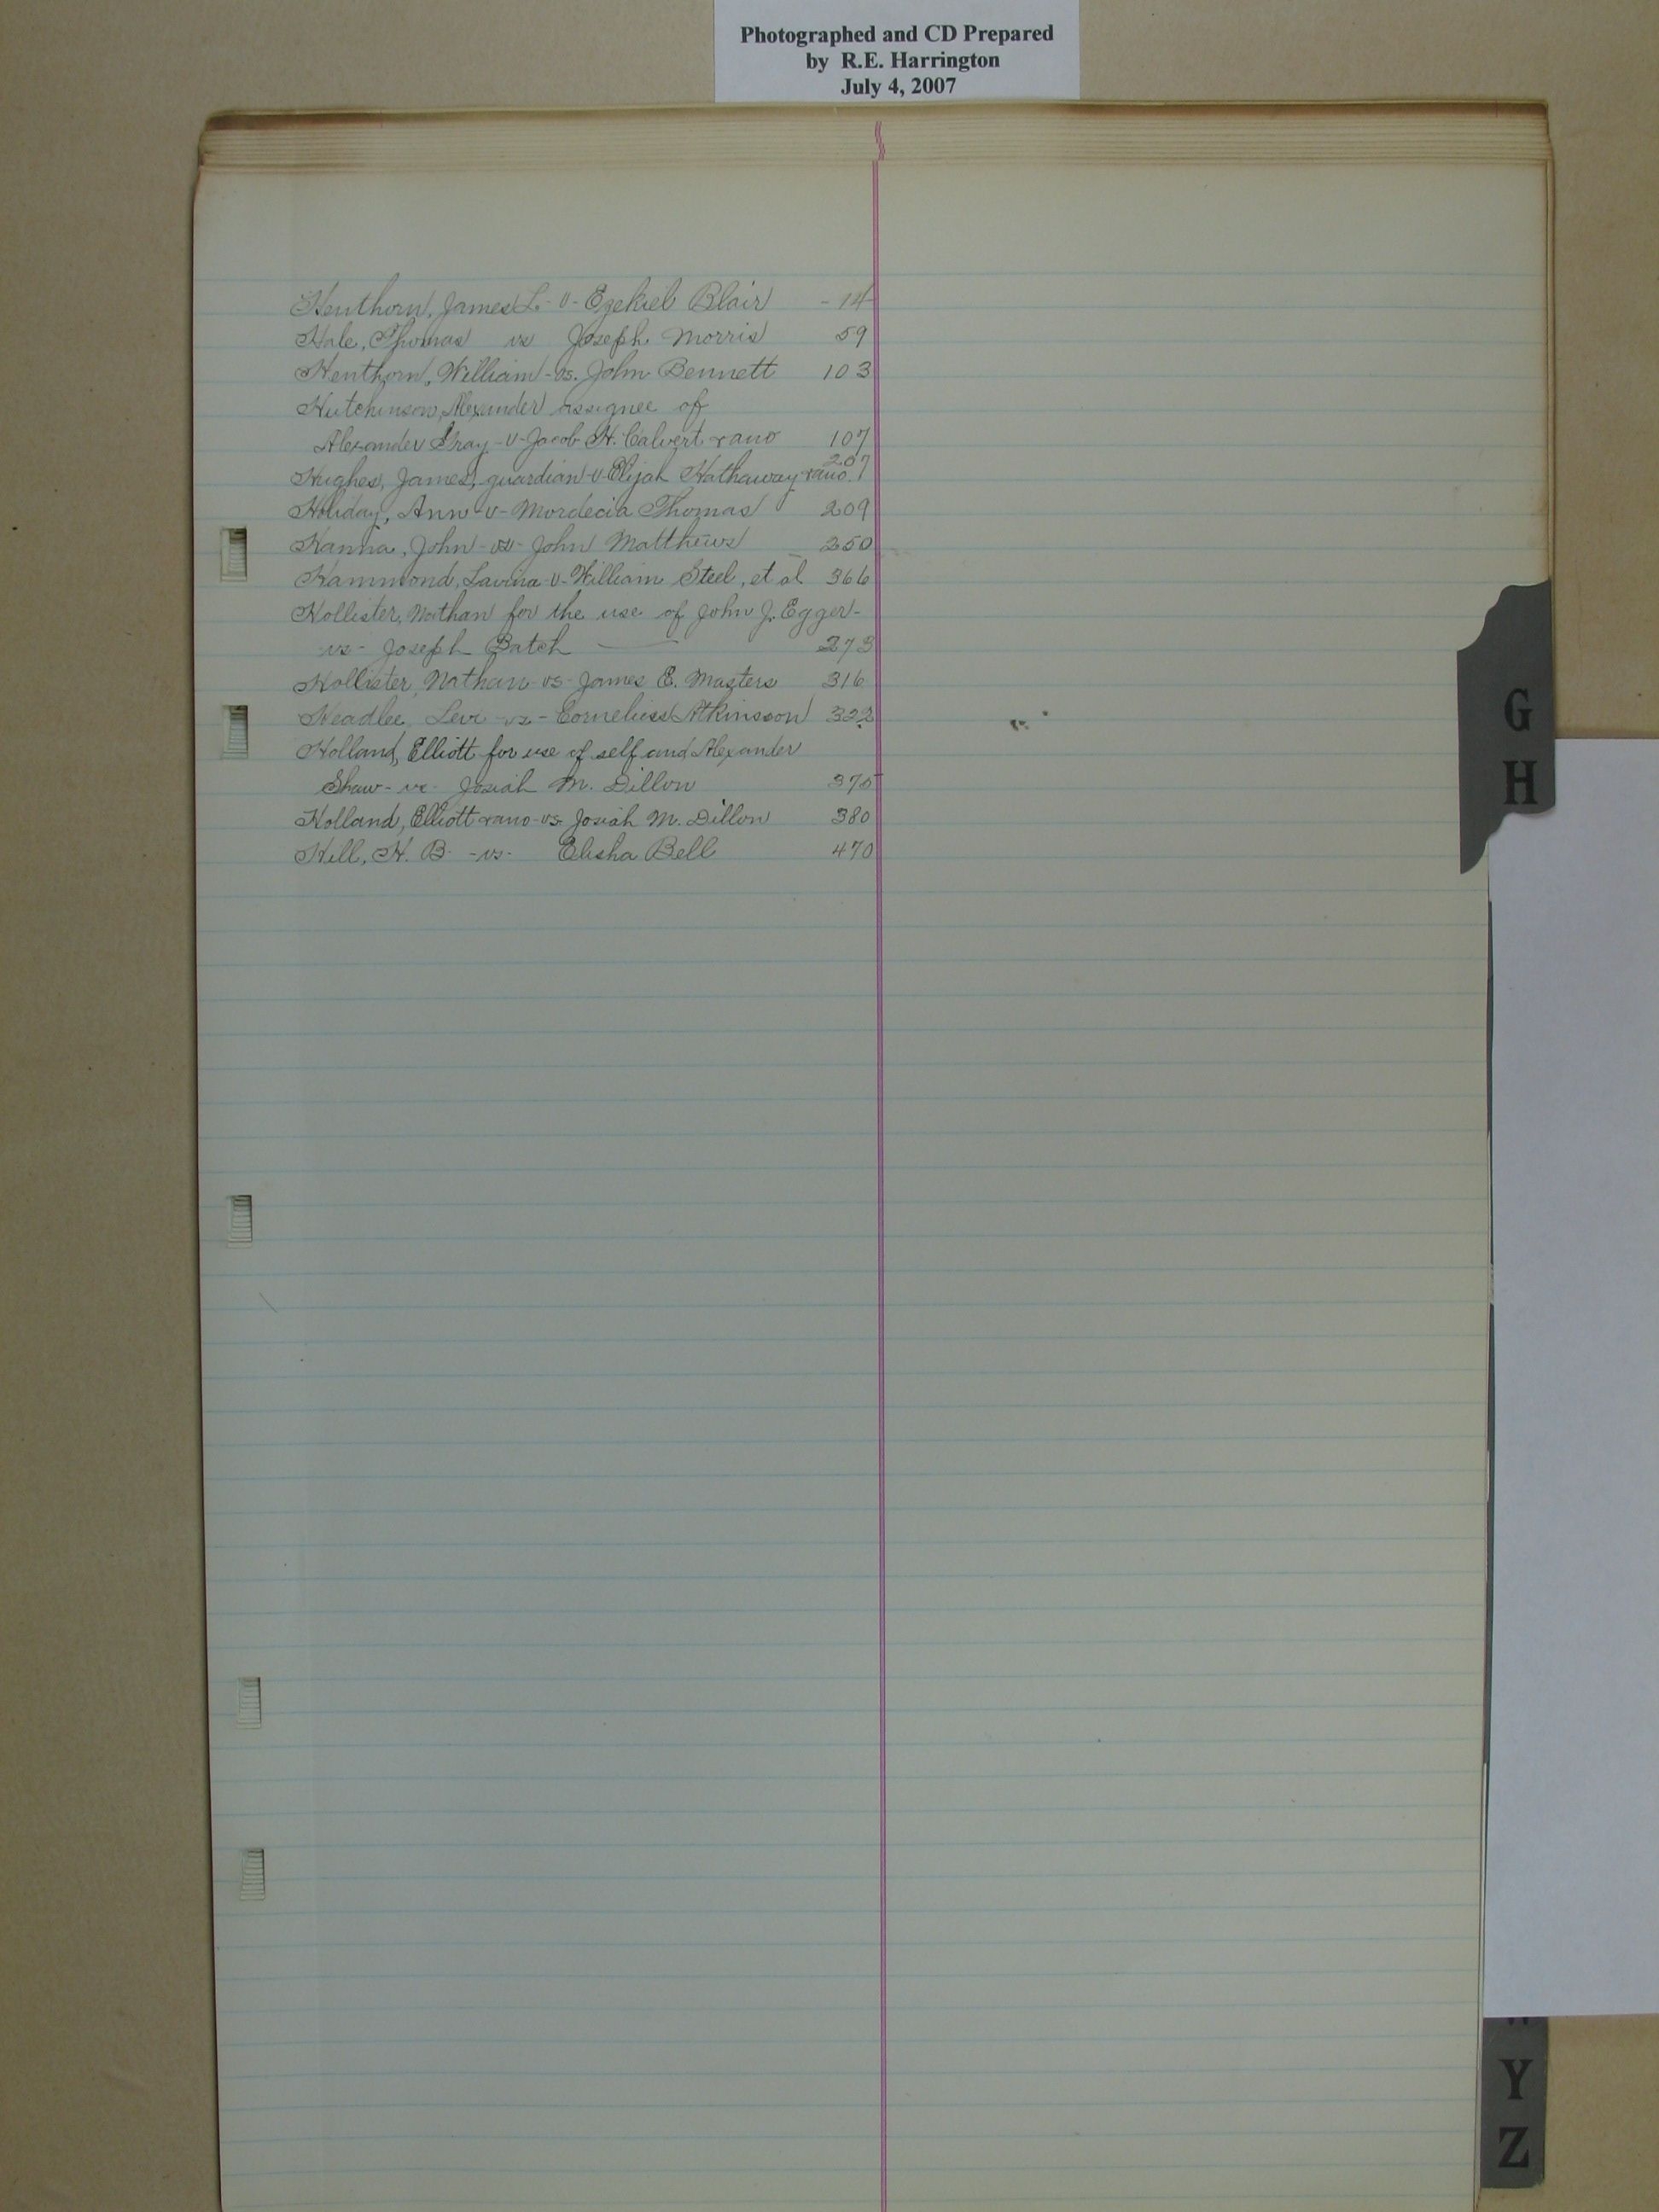 Photographed and CD Prepared
by R.E. Harrington
July 4, 2007
Henthorn, James L. - v - Ezekiel Blair - 14
Hale, Thomas vs Joseph Morris 59
Henthorn, William - vs. John Bennett 103
Hutchinson, Alexander assignee of
Alexander Gray - v - Jacob H. Calvert & ano 107
Hughes, James, guardian - v - Elijah Hathaway & ano. 207
Holiday, Ann - v - Mordecia Thomas 209
Hanna, John - vs - John Matthews 250
Hammond, Lavina - v - William Steel, et al 366
Hollister, Nathan for the use of John J. Egger -
vs - Joseph Batch 273
Hollister, Nathan - vs - James E. Masters 316
Headlee, Levi - vs - Cornelius Atkinson 322
Holland, Elliott for use of self and Alexander
Shaw - vs - Josiah M. Dillon 375
Holland, Elliott & ano - vs - Josiah M. Dillon 380
Hill, H. B. - vs - Elisha Bell 470
G
H
Y
Z